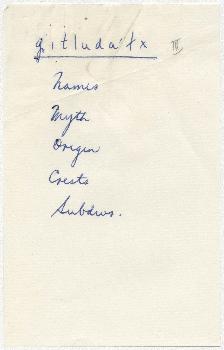 gitluda'tx III
Names
Myth
Origin
Crests
Subdivs.